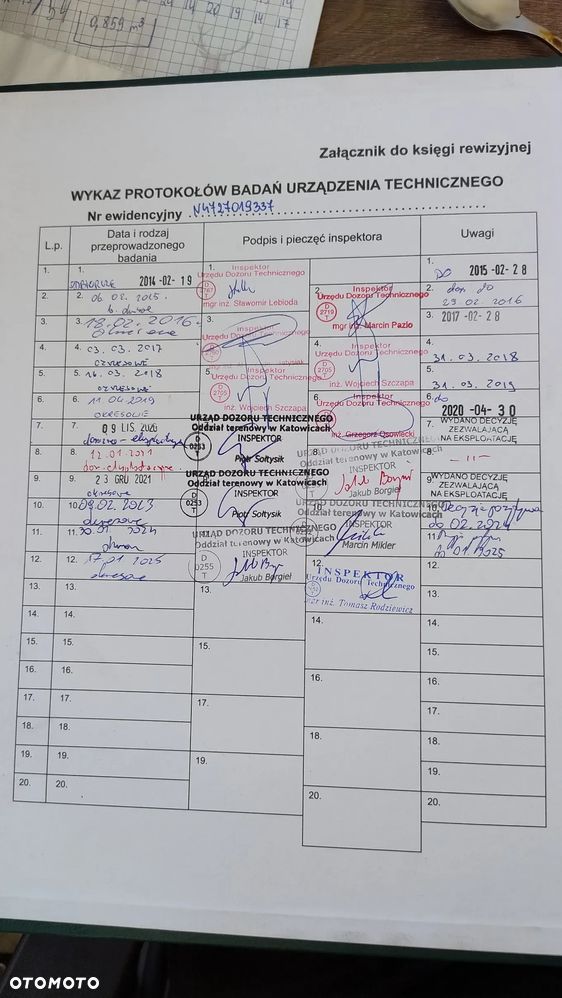 0,859 m³
Załącznik do księgi rewizyjnej
WYKAZ PROTOKOŁÓW BADAŃ URZĄDZENIA TECHNICZNEGO
Nr ewidencyjny N4727019337
L.p.
Data i rodzaj przeprowadzonego badania
Podpis i pieczęć inspektora
Uwagi
1. 1. 2014-02-19
1. Inspektor
Urzędu Dozoru Technicznego
mgr inż. Sławomir Lebioda
1. DO 2015-02-28
2. 2. 06 02. 2015.
2. Inspektor
Urzędu Dozoru Technicznego
D 2719 T
mgr inż. Marcin Pazio
2. don do
29 02. 2016
3. 3. 18.02.2016.
okresowe
3.
3. 2017-02-28
4. 4. 03.03.2017
OKRESOWE
4. Inspektor
Urzędu Dozoru Technicznego
D 2705 T
inż. Wojciech Szczapa
4.
31.03.2018
5. 5. 16.03.2018
OKRESOWE
5. Inspektor
Urzędu Dozoru Technicznego
D 2705 T
inż. Wojciech Szczapa
5.
31.03.2019
6. 6. 11 04 2019
OKRESOWE
6. Inspektor
Urzędu Dozoru Technicznego
inż. Grzegorz Osowiecki
6. do
2020-04-30
7. 7. 09 LIS. 2020
URZĄD DOZORU TECHNICZNEGO
Oddział terenowy w Katowicach
INSPEKTOR
D 0253 T
Piotr Sołtysik
7. WYDANO DECYZJĘ
ZEZWALAJĄCĄ
NA EKSPLOATACJĘ
8. 8. 12.01.2021
8. URZĄD DOZORU TECHNICZNEGO
Oddział terenowy w Katowicach
INSPEKTOR
Jakub Borgieł
8. -11-
9. 9. 23 GRU 2021
okresowe
URZĄD DOZORU TECHNICZNEGO
Oddział terenowy w Katowicach
INSPEKTOR
D 0253 T
Piotr Sołtysik
9. WYDANO DECYZJĘ
ZEZWALAJĄCĄ
NA EKSPLOATACJĘ
10. 10. 09.02.2023
okresowe
10. URZĄD DOZORU TECHNICZNEGO
Oddział terenowy w Katowicach
INSPEKTOR
Marcin Mikler
10.
do 02.2024
11. 11. 30.01 2024
URZĄD DOZORU TECHNICZNEGO
Oddział terenowy w Katowicach
INSPEKTOR
D 0255 T
Jakub Borgieł
11.
01 2025
12. 12. 17 01 2025
okresowe
12. INSPEKTOR
Urzędu Dozoru Technicznego
mgr inż. Tomasz Rodziewicz
12.
13. 13. 13. 13.
14. 14. 14. 14.
15. 15. 15. 15.
16. 16. 16. 16.
17. 17. 17. 17.
18. 18. 18. 18.
19. 19. 19. 19.
20. 20. 20. 20.
OTOMOTO